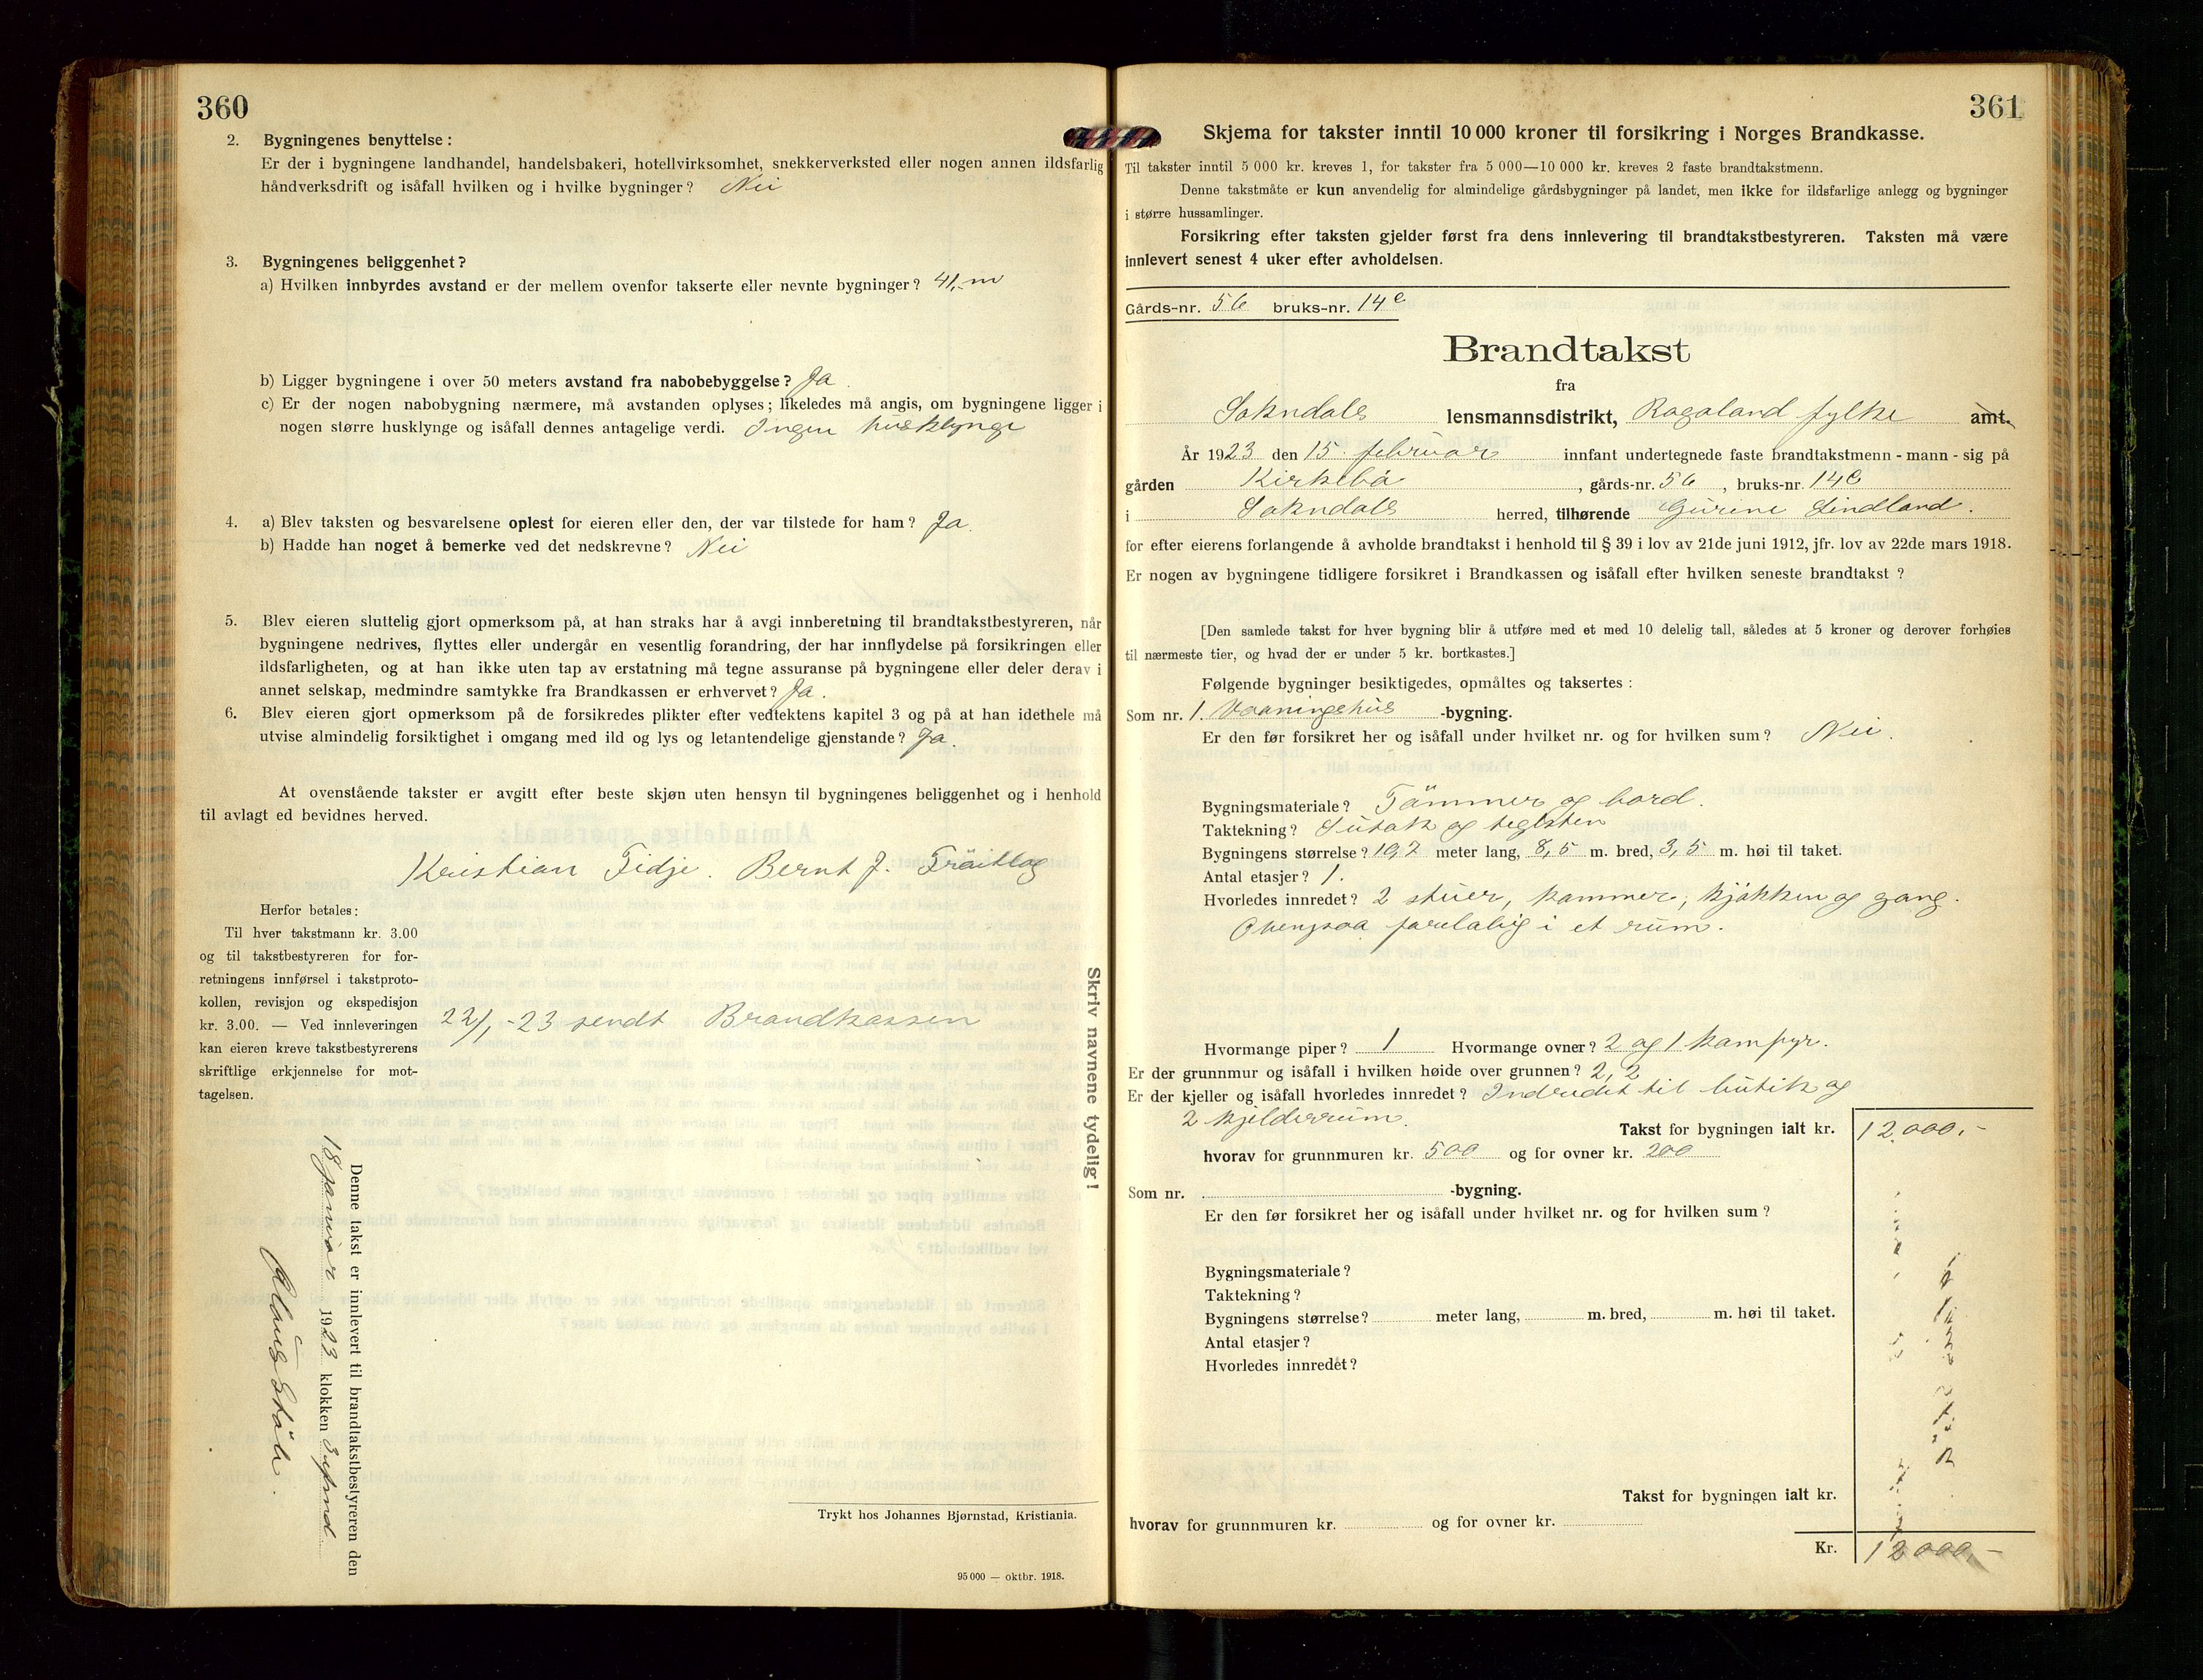 360
2. Bygningenes benyttelse:
Er der i bygningene landhandel, handelsbakeri, hotellvirksomhet, snekkerverksted eller nogen annen ildsfarlig
håndverksdrift og isåfall hvilken og i hvilke bygninger? Nei
3. Bygningenes beliggenhet?
a) Hvilken innbyrdes avstand er der mellem ovenfor takserte eller nevnte bygninger? 41,-m
b) Ligger bygningene i over 50 meters avstand fra nabobebyggelse? Ja.
c) Er der nogen nabobygning nærmere, må avstanden oplyses; likeledes må angis, om bygningene ligger i
nogen større husklynge og isåfall dennes antagelige verdi. Ingen husklynge
4. a) Blev taksten og besvarelsene oplest for eieren eller den, der var tilstede for ham? Ja.
b) Hadde han noget å bemerke ved det nedskrevne? Nei
5. Blev eieren sluttelig gjort opmerksom på, at han straks har å avgi innberetning til brandtakstbestyreren, når
bygningene nedrives, flyttes eller undergår en vesentlig forandring, der har innflydelse på forsikringen eller
ildsfarligheten, og at han ikke uten tap av erstatning må tegne assuranse på bygningene eller deler derav i
annet selskap, medmindre samtykke fra Brandkassen er erhvervet? Ja.
6. Blev eieren gjort opmerksom på de forsikredes plikter efter vedtektens kapitel 3 og på at han idethele må
utvise almindelig forsiktighet i omgang med ild og lys og letantendelige gjenstande? Ja.
At ovenstående takster er avgitt efter beste skjøn uten hensyn til bygningenes beliggenhet og i henhold
til avlagt ed bevidnes herved.
Kristian Tidje. Bernt J.
Herfor betales:
Til hver takstmann kr. 3.00
og til takstbestyreren for for-
retningens innførsel i takstproto-
kollen, revisjon og ekspedisjon
kr. 3.00. — Ved innleveringen
kan eieren kreve takstbestyrerens
skriftlige erkjennelse for mot-
tagelsen.
22/1 -23 sendt Brandkassen
Skriv navnene tydelig!
Denne takst er innlevert til brandtakstbestyreren den
18 januar 1923 klokken
Trykt hos Johannes Bjørnstad, Kristiania.
95 000 — oktbr. 1918.
361
Skjema for takster inntil 10 000 kroner til forsikring i Norges Brandkasse.
Til takster inntil 5 000 kr. kreves 1, for takster fra 5 000—10 000 kr. kreves 2 faste brandtakstmenn.
Denne takstmåte er kun anvendelig for almindelige gårdsbygninger på landet, men ikke for ildsfarlige anlegg og bygninger
i større hussamlinger.
Forsikring efter taksten gjelder først fra dens innlevering til brandtakstbestyreren. Taksten må være
innlevert senest 4 uker efter avholdelsen.
Gårds-nr. 56 bruks-nr. 14c
Brandtakst
fra
Sokndals lensmannsdistrikt, Rogaland fylke amt.
År 1923 den 15. februar innfant undertegnede faste brandtakstmenn - mann - sig på
gården Kirkebø, gårds-nr. 56, bruks-nr. 14c
i Sokndals herred, tilhørende Gurine Lindland.
for efter eierens forlangende å avholde brandtakst i henhold til § 39 i lov av 21de juni 1912, jfr. lov av 22de mars 1918.
Er nogen av bygningene tidligere forsikret i Brandkassen og isåfall efter hvilken seneste brandtakst?
[Den samlede takst for hver bygning blir å utføre med et med 10 delelig tall, således at 5 kroner og derover forhøies
til nærmeste tier, og hvad der er under 5 kr. bortkastes.]
Følgende bygninger besiktigedes, opmåltes og taksertes:
Som nr. 1. Vaaningshus -bygning.
Er den før forsikret her og isåfall under hvilket nr. og for hvilken sum? Nei.
Bygningsmateriale? Tømmer og bord.
Taktekning? Sutak og teglsten
Bygningens størrelse? 10,2 meter lang, 8,5 m. bred, 3,5 m. høi til taket.
Antal etasjer? 1.
Hvorledes innredet? 2 stuer, kammer, kjøkken og gang.
Ovenpaa forelabig i et rum.
Hvormange piper? 1 Hvormange ovner? 2 og 1 komfyr.
Er der grunnmur og isåfall i hvilken høide over grunnen? 2,2
Er der kjeller og isåfall hvorledes innredet? Indredet til butik og
2 kjelderrum.
Takst for bygningen ialt kr. 12.000,-
hvorav for grunnmuren kr. 500 og for ovner kr. 200
Som nr. -bygning.
Er den før forsikret her og isåfall under hvilket nr. og for hvilken sum?
Bygningsmateriale?
Taktekning?
Bygningens størrelse? meter lang, m. bred, m. høi til taket.
Antal etasjer?
Hvorledes innredet?
Takst for bygningen ialt kr.
hvorav for grunnmuren kr. og for ovner kr.
Kr. 12000,-